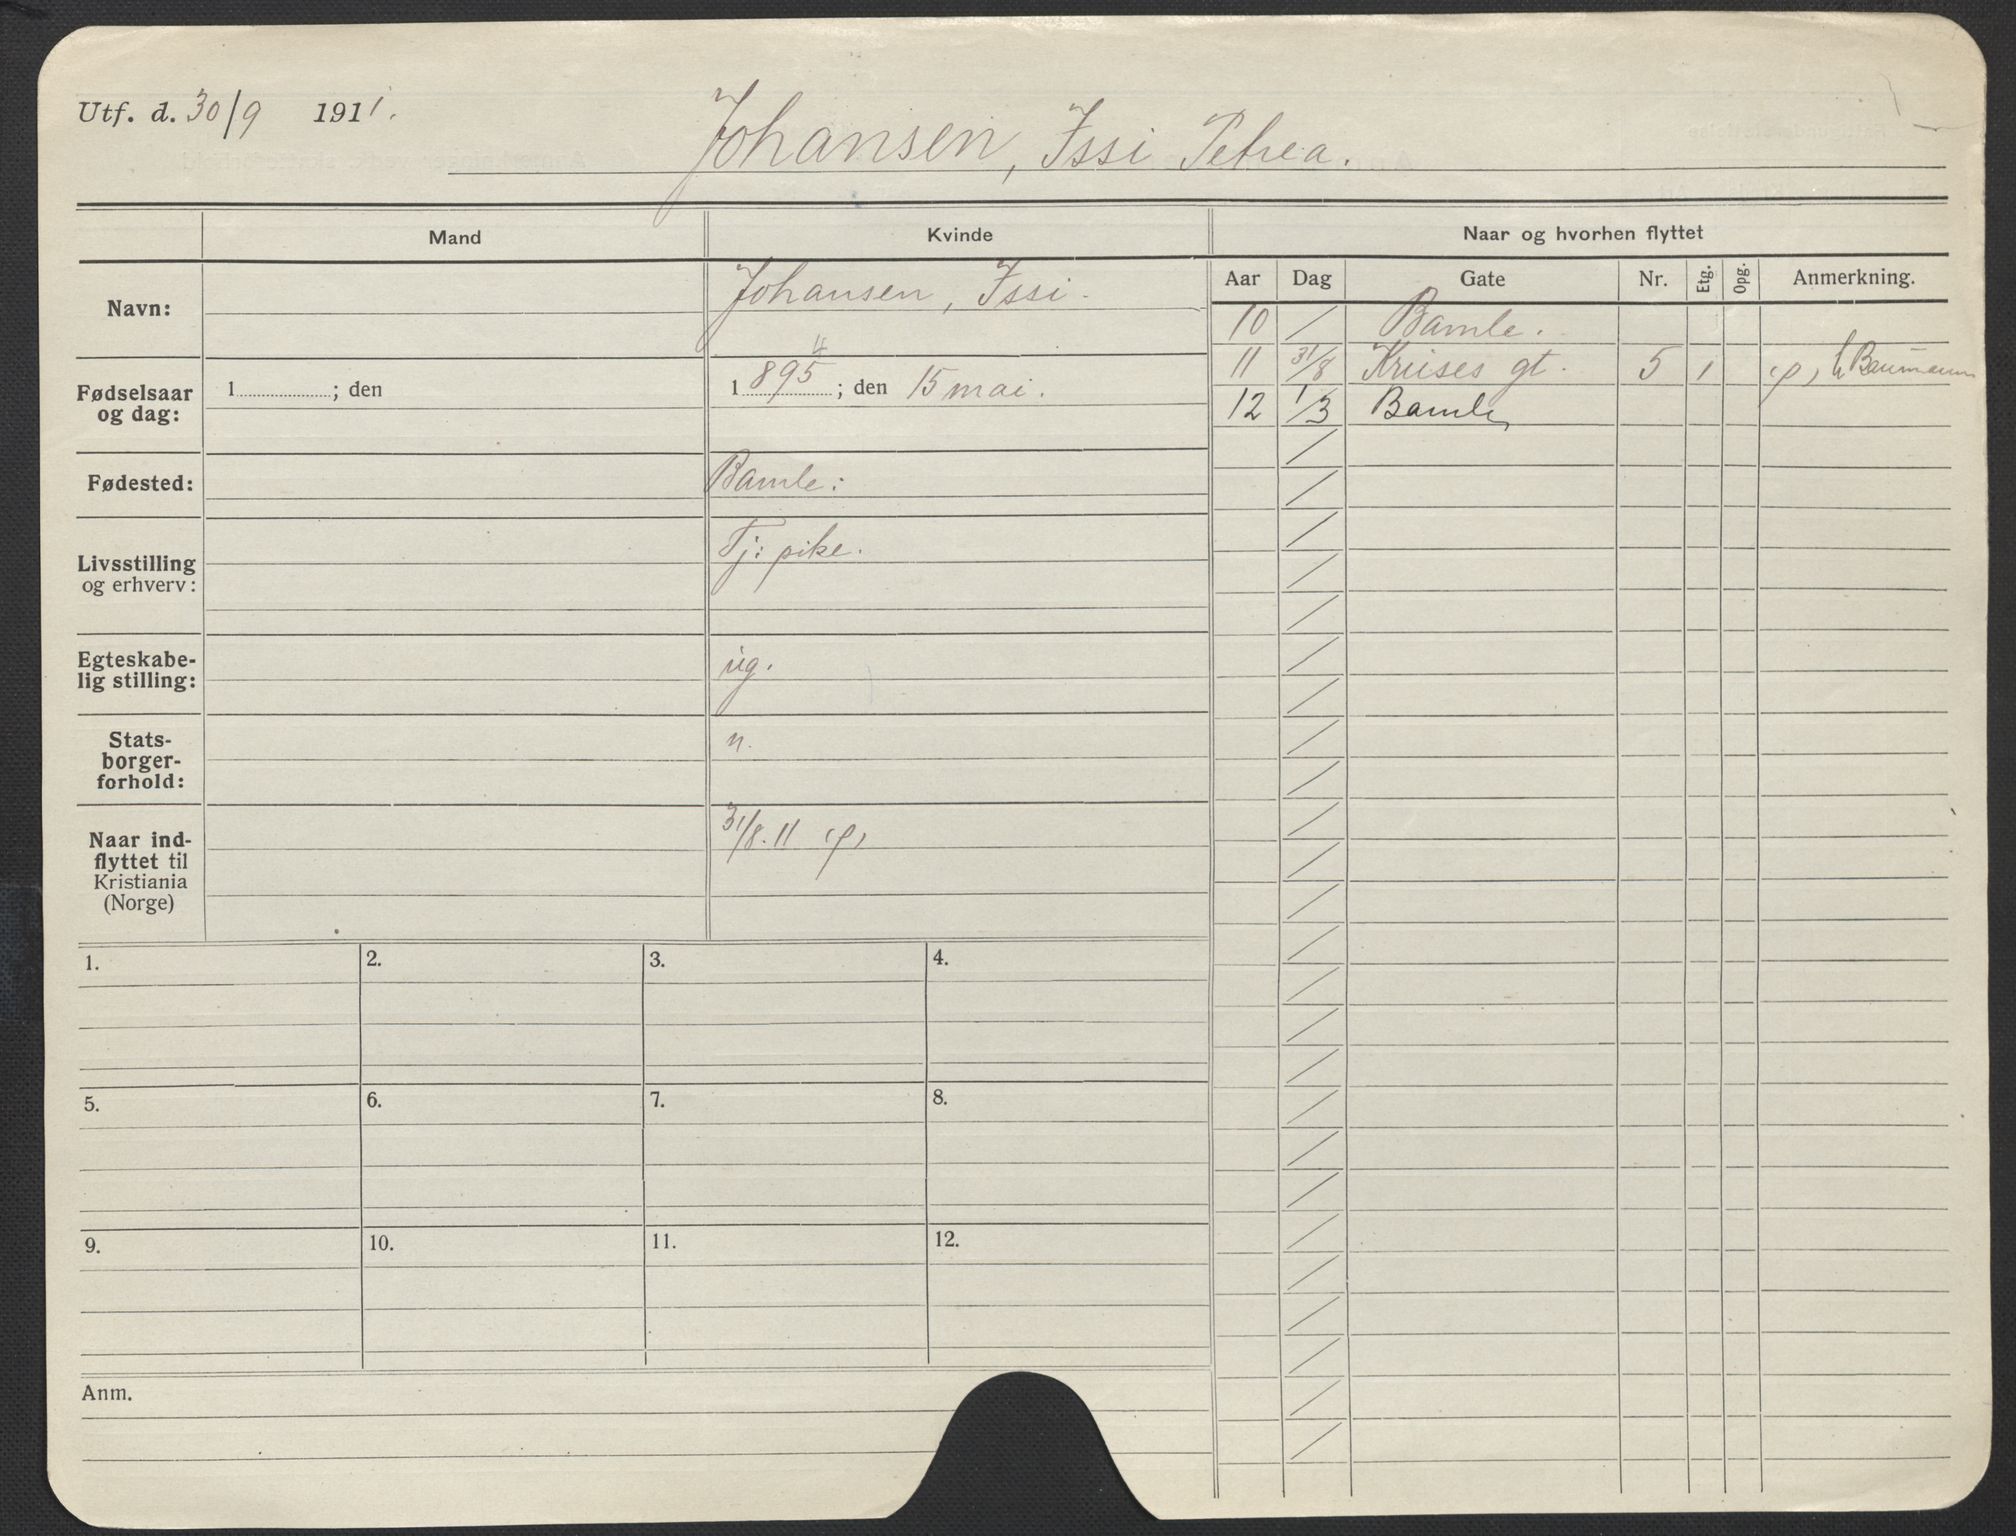 Utf. d. 30/9 1911.
Johansen, Issi Petrea.
Mand
Kvinde
Naar og hvorhen flyttet
Aar Dag Gate Nr. Etg. Opg. Anmerkning.
Navn:
Johansen, Issi.
Fødselsaar
og dag:
1 ; den
4
1895 ; den 15 mai.
Fødested:
Bamle:
Livsstilling
og erhverv:
Tj: pike.
Egteskabe-
lig stilling:
ug.
Stats-
borger-
forhold:
n.
Naar ind-
flyttet til
Kristiania
(Norge)
31/8. 11
10 / Bamle.
11 31/8 Kruses gt. 5 1 h Baumann
12 1/3 Bamle
1. 2. 3. 4.
5. 6. 7. 8.
9. 10. 11. 12.
Anm.